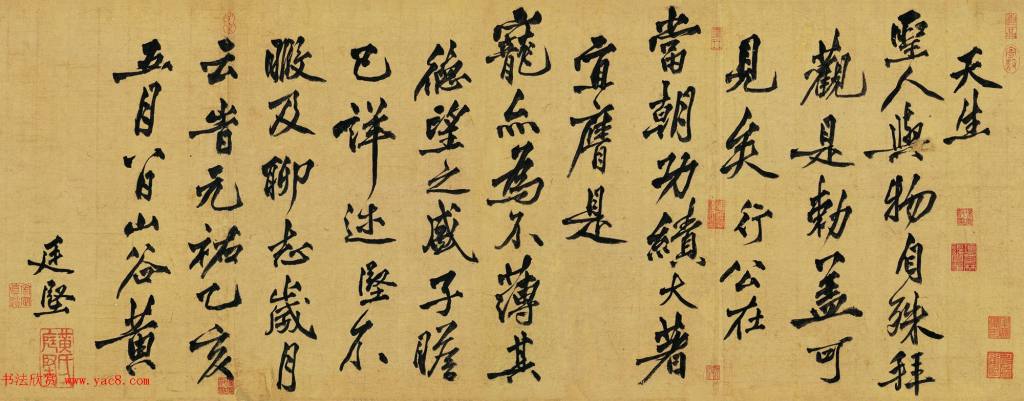 天生
聖人與物自殊拜
觀是勅蓋可
見矣行公在
當朝功績大著
宜膺是
寵亦為不薄其
德望之盛子瞻
已詳述堅不
暇及聊志歲月
云皆元祐乙亥
五月八日山谷黃
廷堅
黃氏庭堅
书法欣赏 www.yac8.com